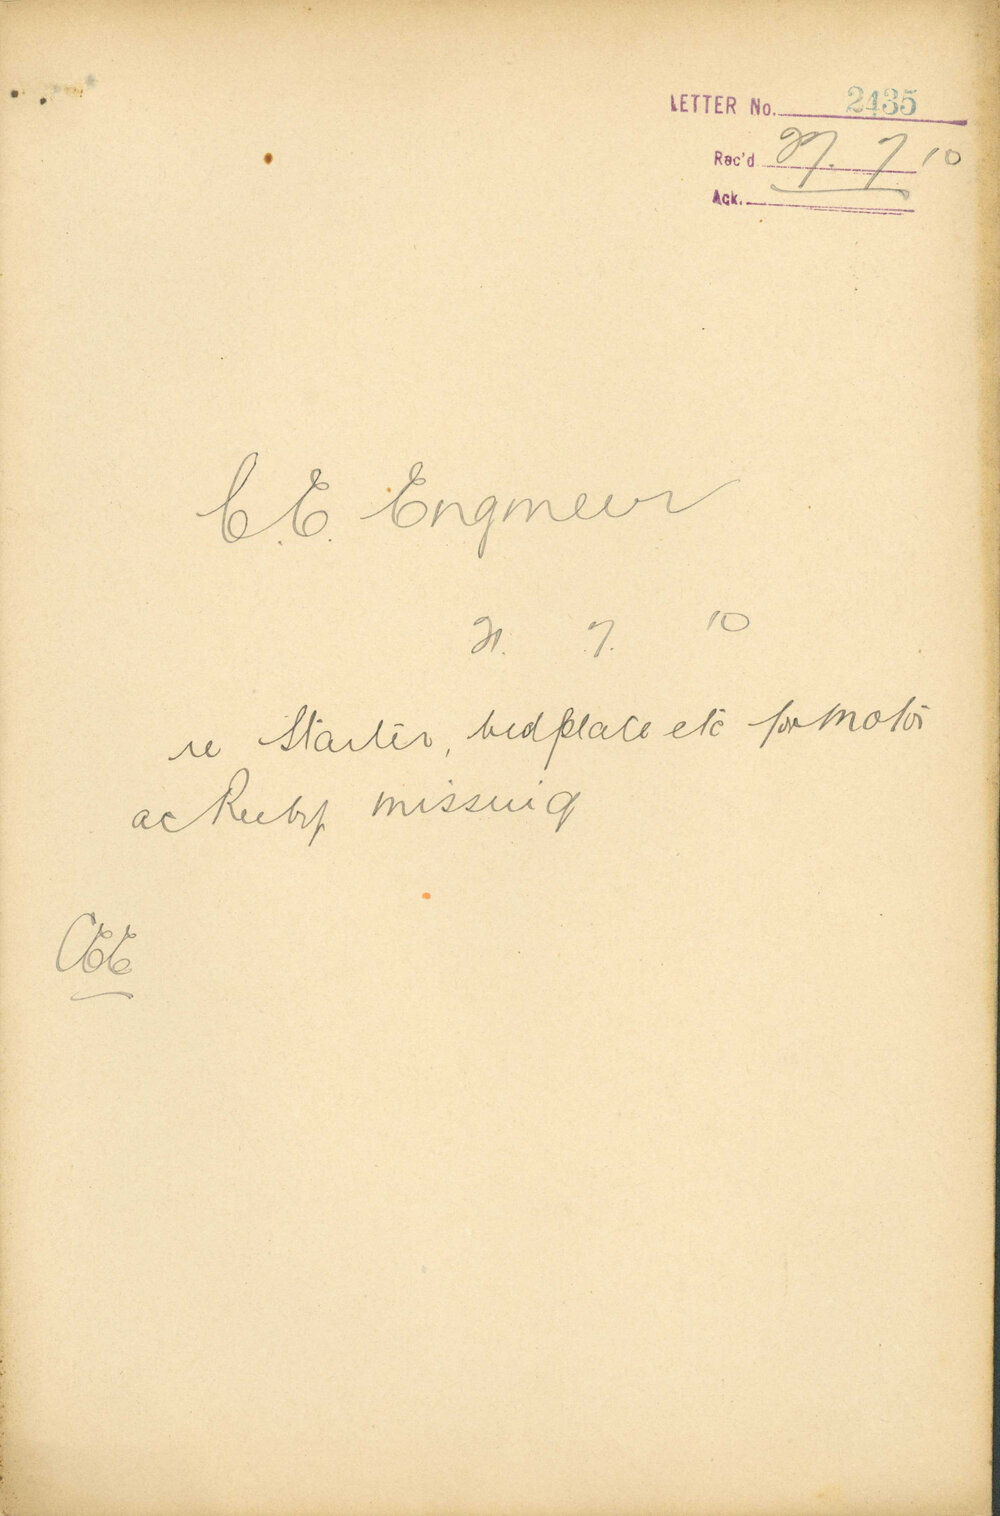 LETTER No. 2435
Rec'd 27. 7 10
Ack.
C.E. Engineer
21. 7. 10
re Starter, bedplate etc for motor
missing
CEE